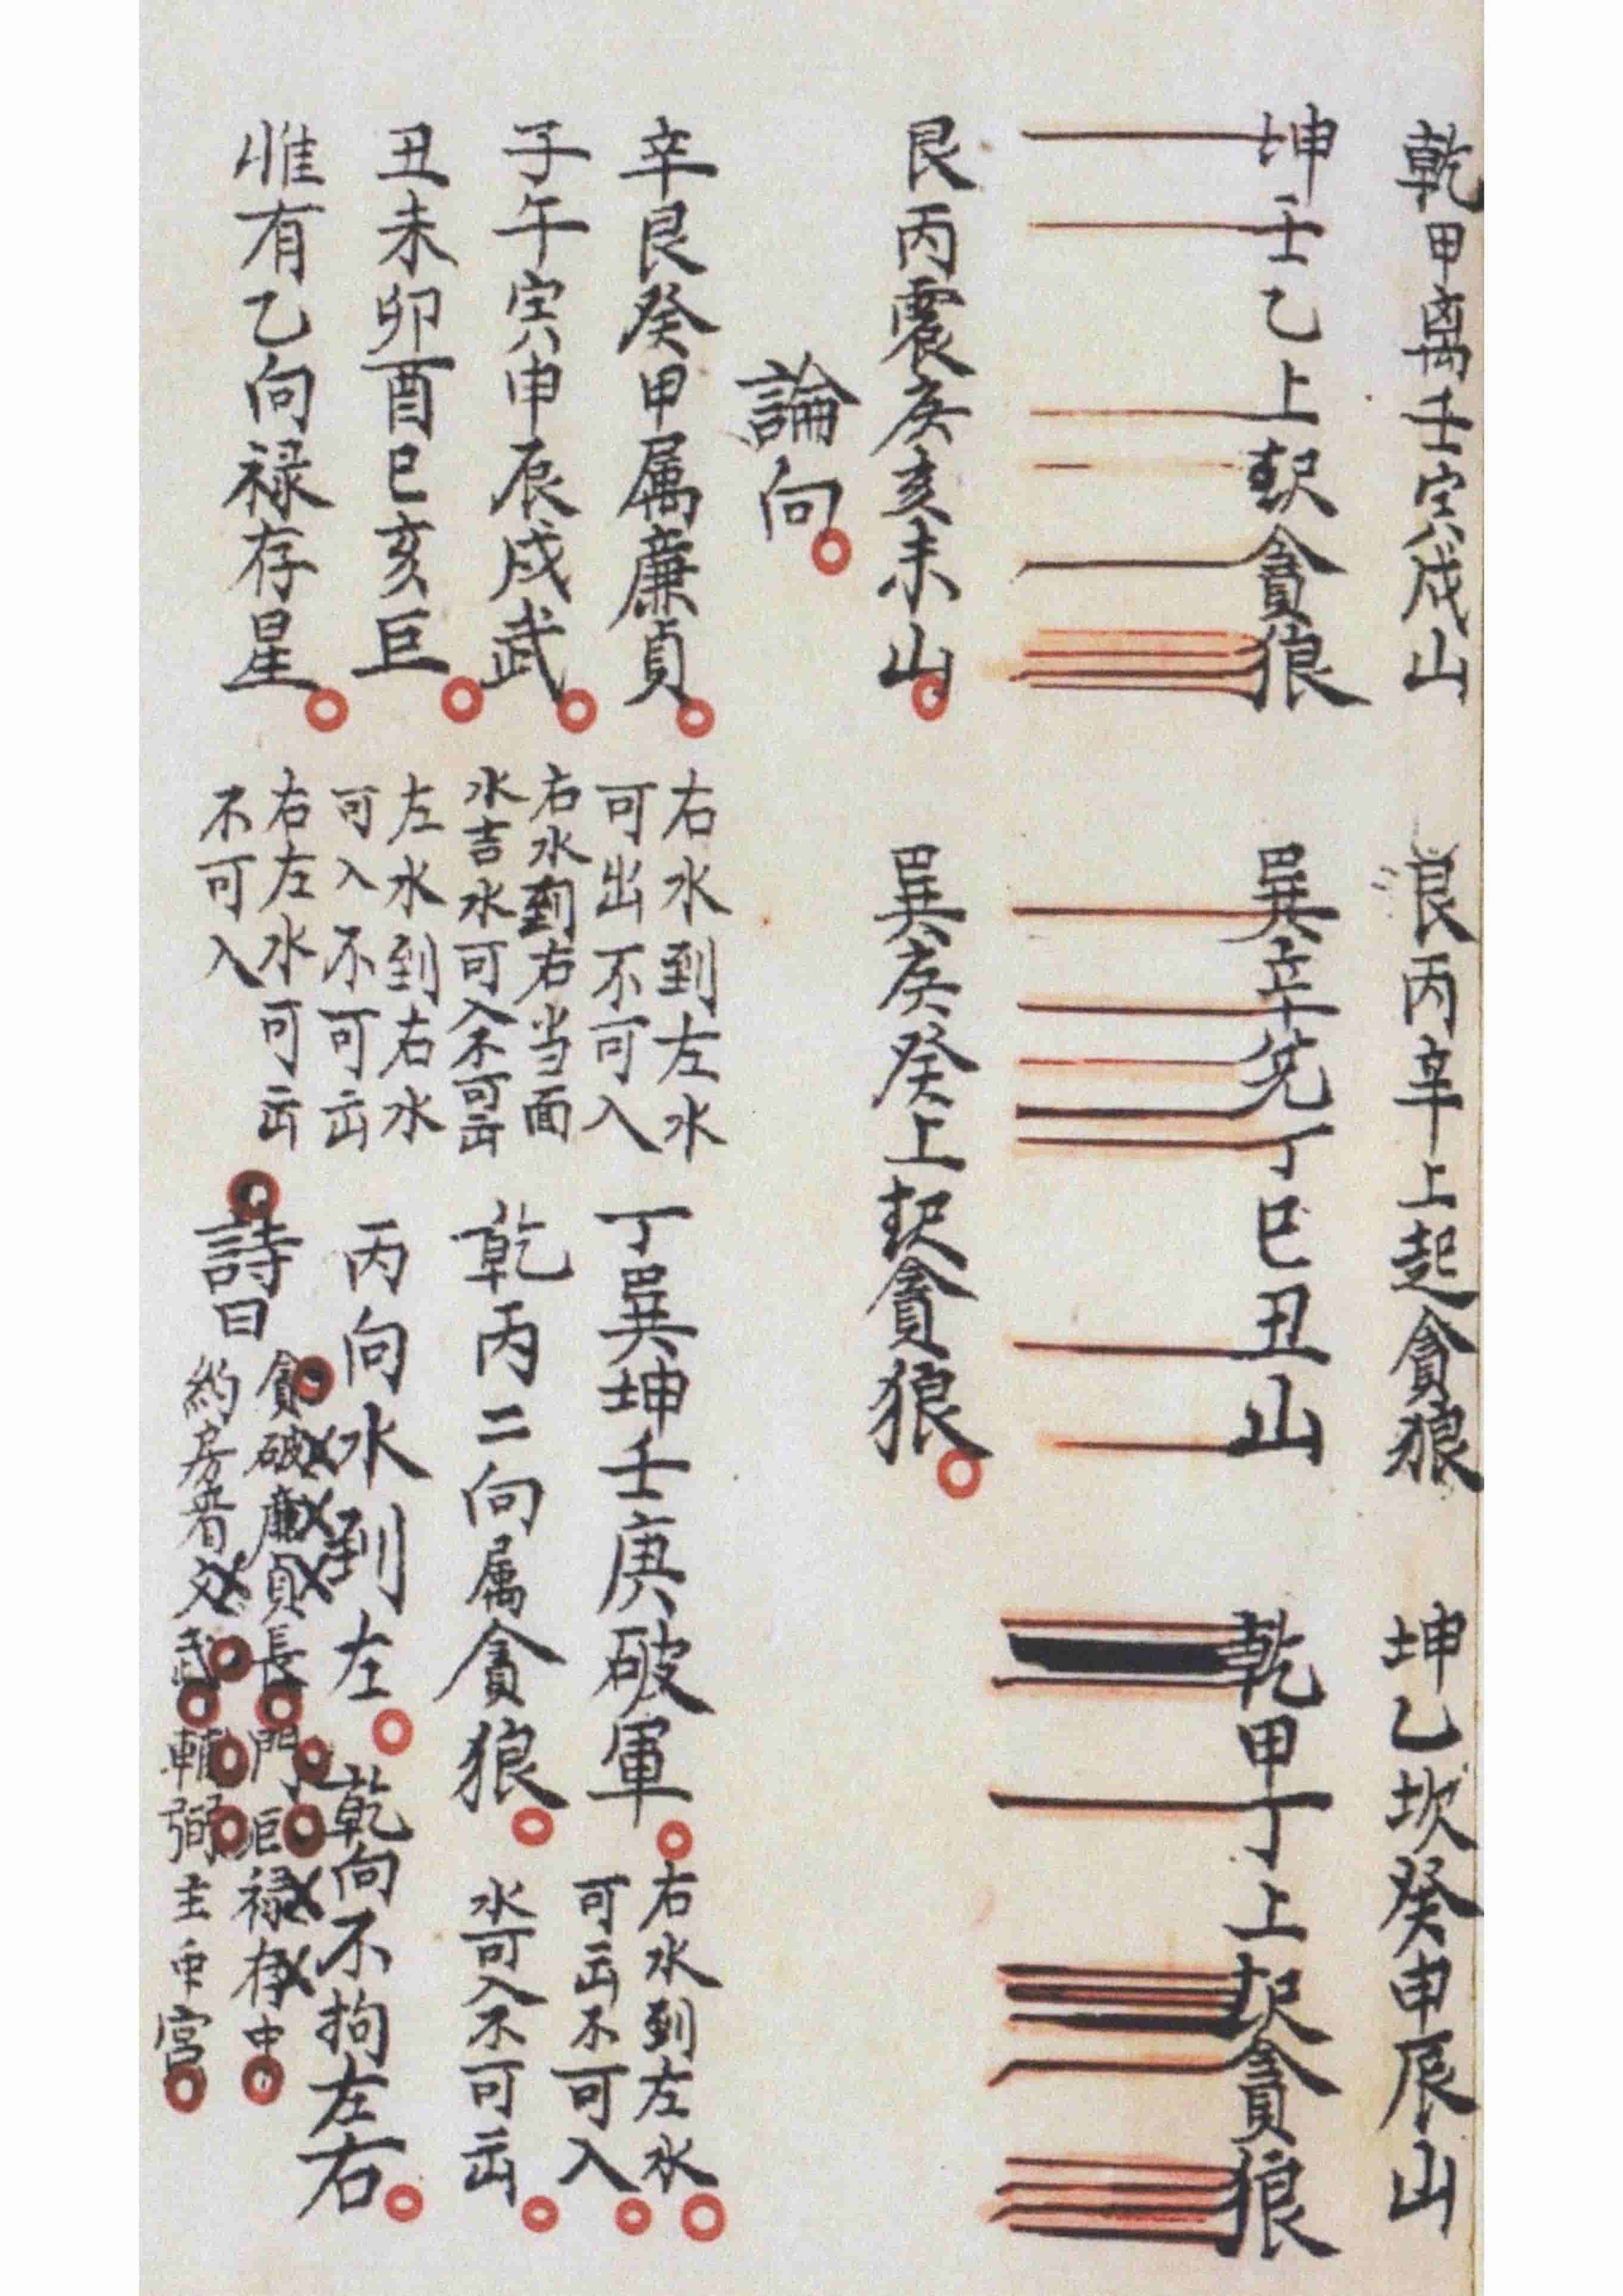 乾甲离壬寅戌山　艮丙辛上起貪狼　坤乙坎癸申辰山
坤壬乙上起貪狼　巽辛兊丁巳丑山　乾甲丁上起貪狼
艮丙震庚亥未山　巽庚癸上起貪狼
論向
辛艮癸甲属廉貞　右水到左水
可出不可入　丁巽坤壬庚破軍　右水到左水
可出不可入
子午寅申辰戌武　右水到右当面
水吉水可入不可出　乾丙二向属貪狼　水可入不可出
丑未卯酉巳亥巨　左水到右水
可入不可出　丙向水到左　乾向不拘左右
惟有乙向禄存星　右左水可出
不可入　詩曰　貪破廉貞長　門巨禄存中
約房看文武　輔弼主中宮